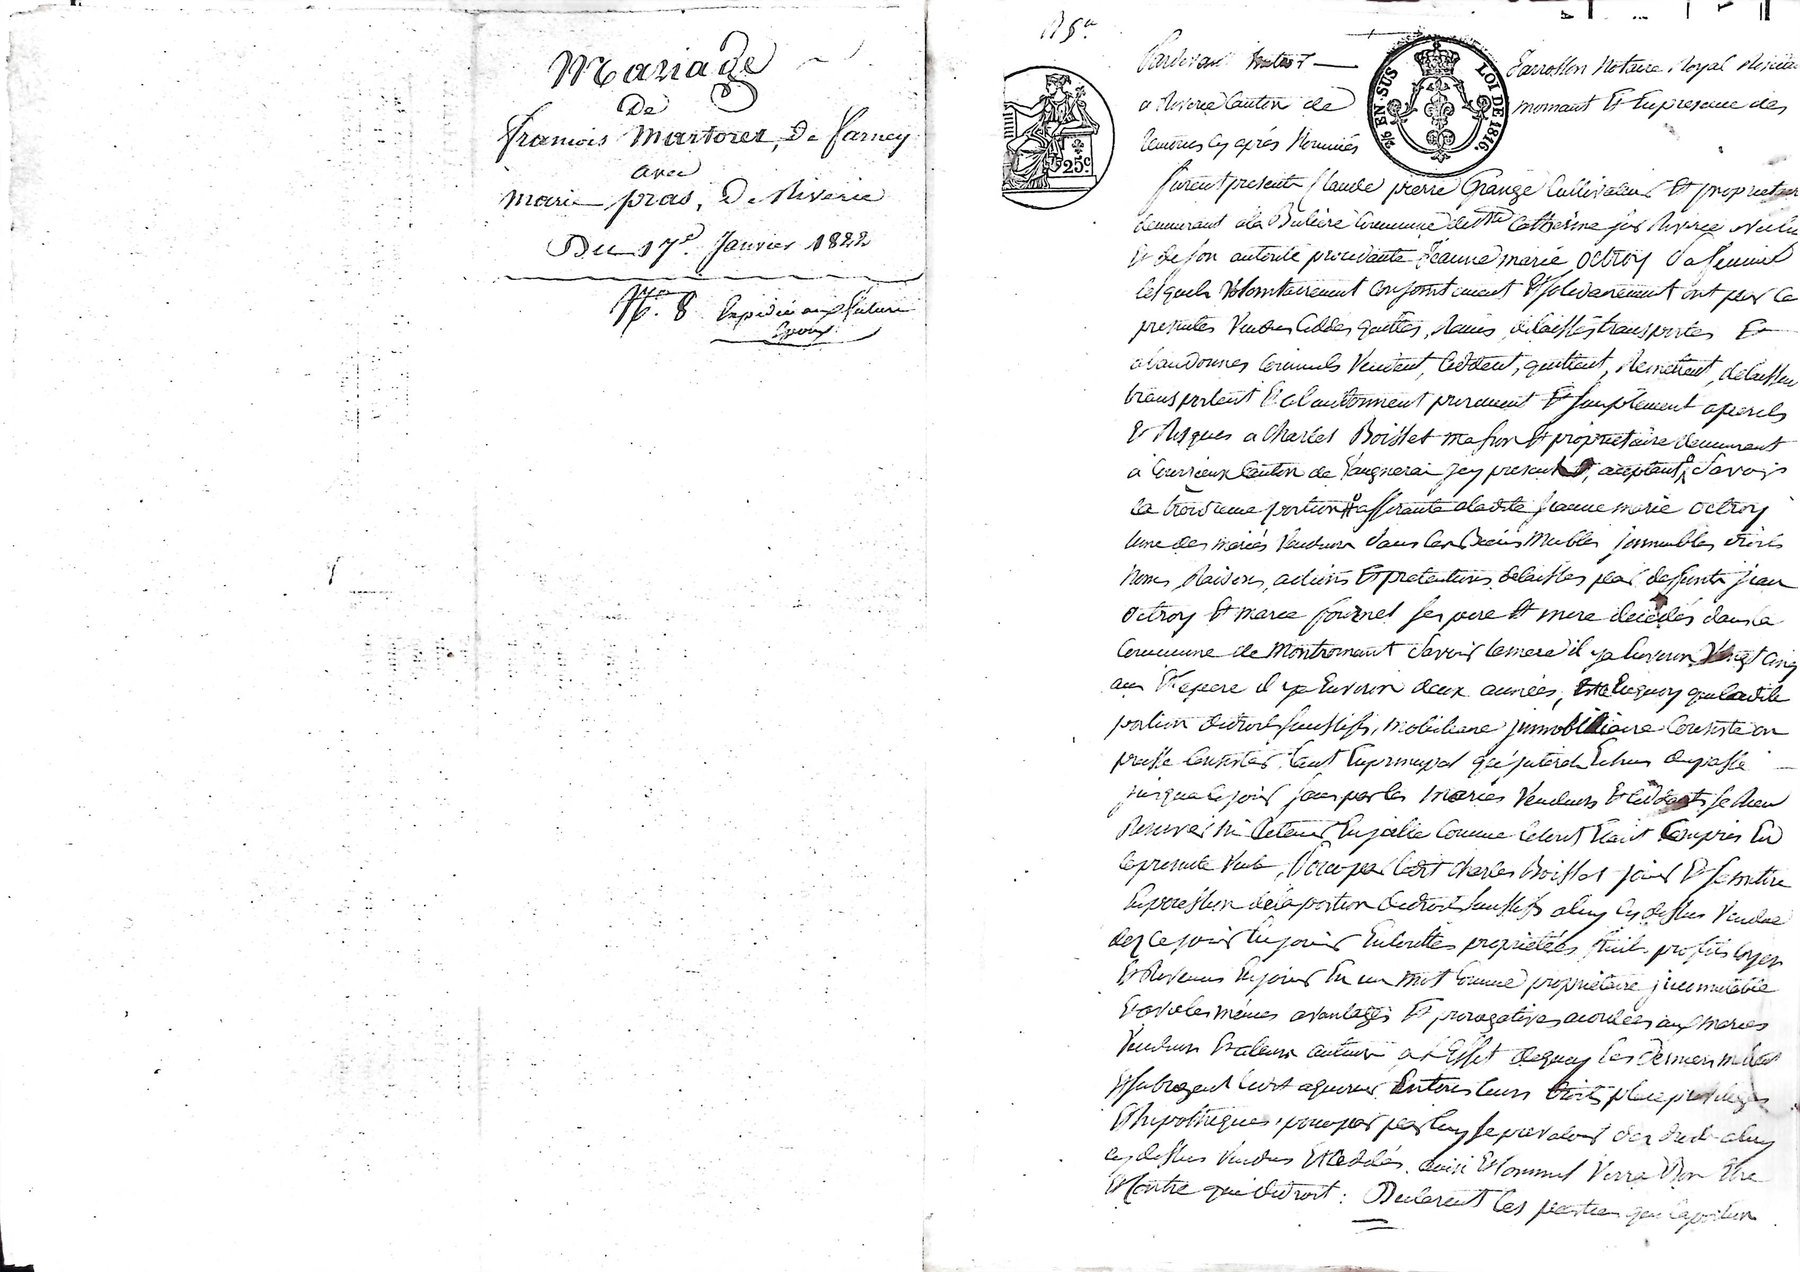 Mariage
De
francois Martorez, De Farney
avec
marie pras, De Riverie
Du 17e. Janvier 1822
N°. 8 Expédiée aux future
Epoux
N 9a
Pardevant Notaire Royal
a Riverie Canton de mornant Et En presence des
temoins cy après Nommés
EN SUS LOI DE 1816.
25c.
furent presents Claude pierre Grange Cultivateur Et proprietaire
demeurant a la Bulière Commune de Ste Catherine sur Riverie
Et de son autorité procedante Jeanne marie Octroy Sa femme
lesquels Volontairement Conjointement Et Solidairement ont par Ce
presentes Vendus Ceddés quittés, Remis delaissés transportés Et
abandonnés Comme ils Vendent, Ceddent, quittent, Remettent, delaissent
transportent Et abandonnent purement Et Simplement a perils
Et Risques a Charles Boisset mason Et proprietaire demeurant
a Courzieux Canton de Vaugneray jcy present Et acceptant Savoir
la troisieme portion afferante a ladite Jeanne marie Octroy
l'une des mariés Vendeurs dans les Biens Meubles jmmeubles droits
Noms Raisons, actions Et pretentions delaissés par defunts jean
Octroy Et marie fournel ses pere Et mere décédés dans la
Commune de Montromant Savoir la mere il y a Environ Vingt Cinq
ans Et le pere il y a Environ deux années, En quoy que ladite
portion de droits Successifs, mobiliaire jmmobiliaire Consiste ou
puisse Consister tant En principal qu'jnterets Echus du passé
jusqua Ce jour sans par les mariés Vendeurs Et Cédants se Rien
Reserver ni Retenir En jcelle Comme le tout Etant Compris En
la presente Vente, Pour par ledit Charles Boisset jouir Et se mettre
En possession de la portion de droits Successifs a luy Cy dessus Vendue
dez Ce jour En jouir En toutes proprietées fruits profits loyers
Et Revenus En jouir En un mot Comme proprietaire jncommutable
Et avec les mêmes avantages Et prerogatives acordées aux mariés
Vendeurs Et a leurs auteurs a l'Effet de quoy Ces derniers mettent
Et Subrogent ledit aquereur En tous leurs droits place privileges
Et hipothèques, pour par luy se prevaloir des droits a luy
cy dessus Vendus Et Ceddés ainsi Et Comme il Verra Bon Etre
Et Contre qui de droit : Declarent les parties que la portion